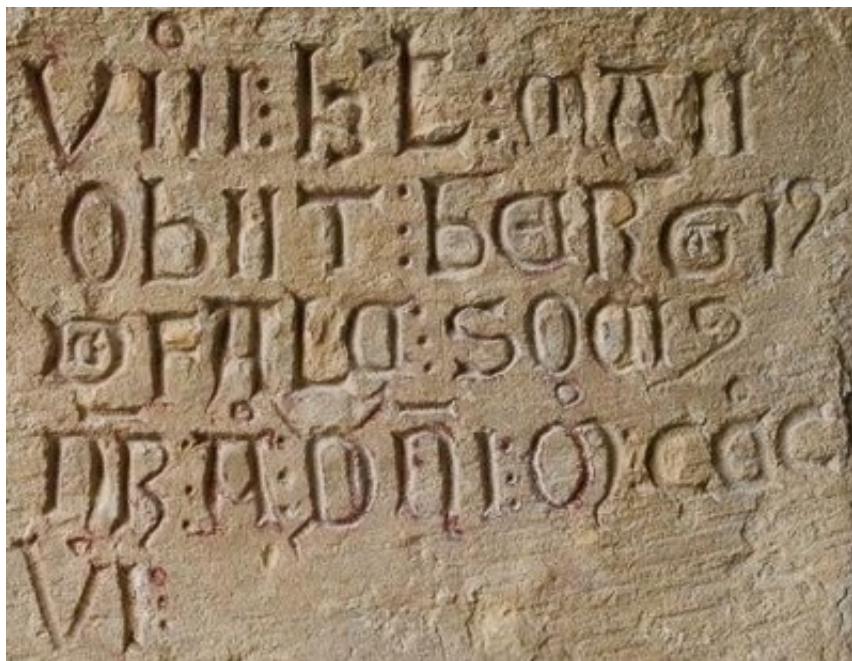 VIII : KL : MAII
OBIIT : BERGI9
D FALC : SOCI9
NR̄ : A° : DN̄I : M° : CCC
VI :